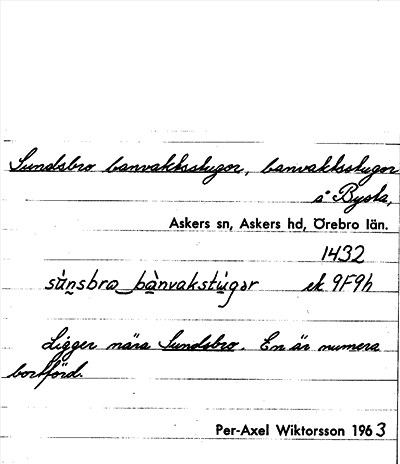 Sundsbro banvaktsstugor, banvaktsstugor
å Bysta,
Askers sn, Askers hd, Örebro län.
1432
sùnsbro bànvakstugør ek 9F9h
Ligger nära Sundsbro. En är numera
bortförd.
Per-Axel Wiktorsson 1963